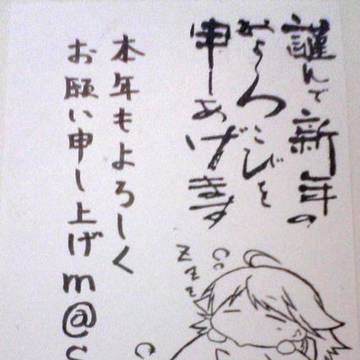 謹んで新年の
およろこびを
申しあげます
本年もよろしく
お願い申し上げm@s
zzz